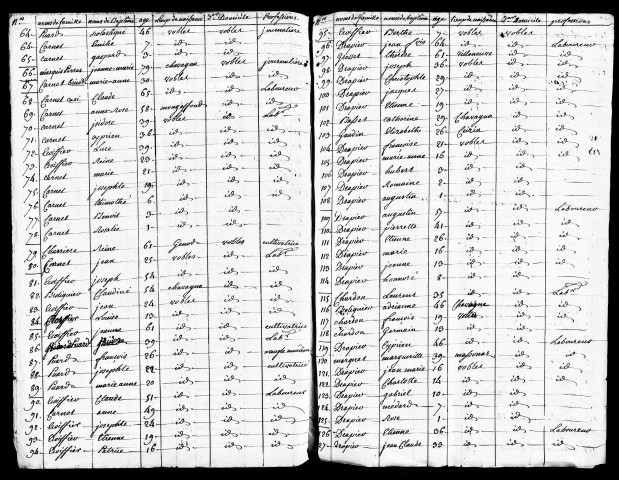 Nos noms de famille noms de Baptême age Lieux de naissance Dom Domicile Professions
64. Huard Scolastique 46 vobles vobles journaliere
65. Carnet 7 id id
65. Carnet gaspard 3 id id
66. marquis Pierre jeanne-marie 79 chavagna vobles journaliere
67. Carnet marie-anne 30 vobles id
68. Carnet Claude 65 id id Laboureur
69. Carnet anne-Rose 58 id
70. carnet isidore 39 vobles id Labr
71. carnet cyprien 36 id id
72. Croiffier Luce 39 id id
73. Croiffier Reine 23 id id
74. carnet marie 21 id id
75. Carnet josephte 19 id id
76. Carnet thimothé 6 id id
77. Carnet Benoit 3 id id
78. Carnet Rosalie 1 id id
79. Charriere Reine 61 vobles cultivatrice
80. Carnet jean 25 vobles id Labr
81. Croiffier joseph 54 id id id
82. Bodignier Claudine 54 chavagna id id
83. Croiffier jean 24 vobles id
84. Croiffier Louise 13 id id
85. Croiffier jeanne 61 id id cultivatrice
86. 39 id id Labr
87. Huard françois 26 id id
88. Huard josephte 22 id id cultivatrice
89. Huard marie anne 20 id id
90. Croiffier Claude 51 id id Laboureur
91. Carnet anne 49 id id
92. Croiffier josephte 24 id id
93. Croiffier Etienne 19 id id
94. Croiffier Patrice 16 id id
Nos noms de famille noms de baptême age Lieux de naissance Dom Domicile professions
95. Croiffier Berthe 7 vobles vobles
96. Drapier jean 64 id id Laboureur
97. Thérèse 61 villeneuve id
98. Drapier joseph 36 vobles id
99. Drapier Christophle 29 id id
100 Drapier jacques 27 id id
101 Drapier Etienne 19 id id
102 catherine 29 Chavagna id
103 Gaudin Elizabethe 26 id
104 Drapier françoise 21 vobles id
105 Drapier marie-anne 16 id id
106 Drapier hubert 3 id id
107 Drapier Romaine 2 id id
108 Drapier augustin 1 id id
109 Drapier augustin id id Laboureur
110 Drapier pierrette 41 id id
111 Drapier Etienne 26 id id
112 Drapier marie 16 id id
113 Drapier jeanne 13 id id
114 Drapier honnoré 8 id id
115 Chardon Laurent 35 id id Labr
116 Bodignier adrianne 46 id
117 chardon françois 19 vobles id
118 chardon Germain 13 id id
119 Drapier Cyprien 46 id id Laboureur
120 marquet margueritte 39 id
121 Drapier jean marie 16 vobles id
122 Drapier Charlotte 14 id id
123 Drapier gabriel 10 id id
124 Drapier médard 7 id id
125 Drapier Rose 1 id id
126 Drapier Etienne 36 id id Laboureur
127 drapier jean Claude 33 id id